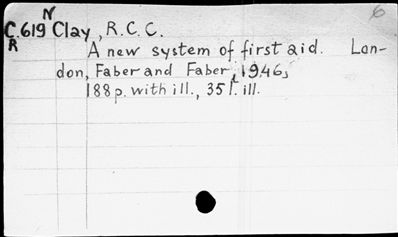 6
N
C.619 Clay, R.C.C.
R
A new system of first aid. Lon-
don, Faber and Faber, 1946,
188 p. with ill., 35 l. ill.